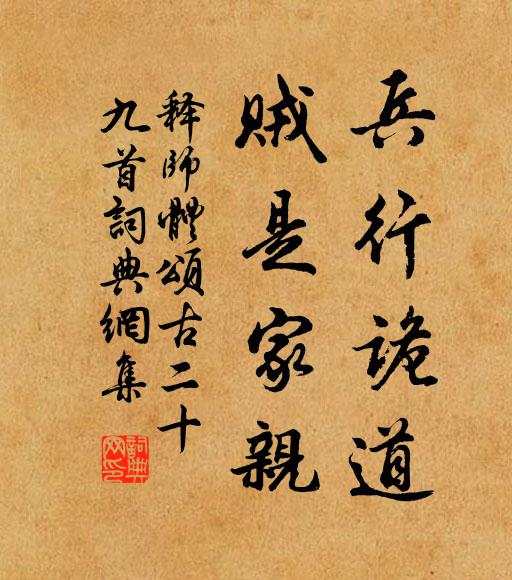 兵行詭道
賊是家親
释師體頌古二十
九首詞典網集
詞典网印